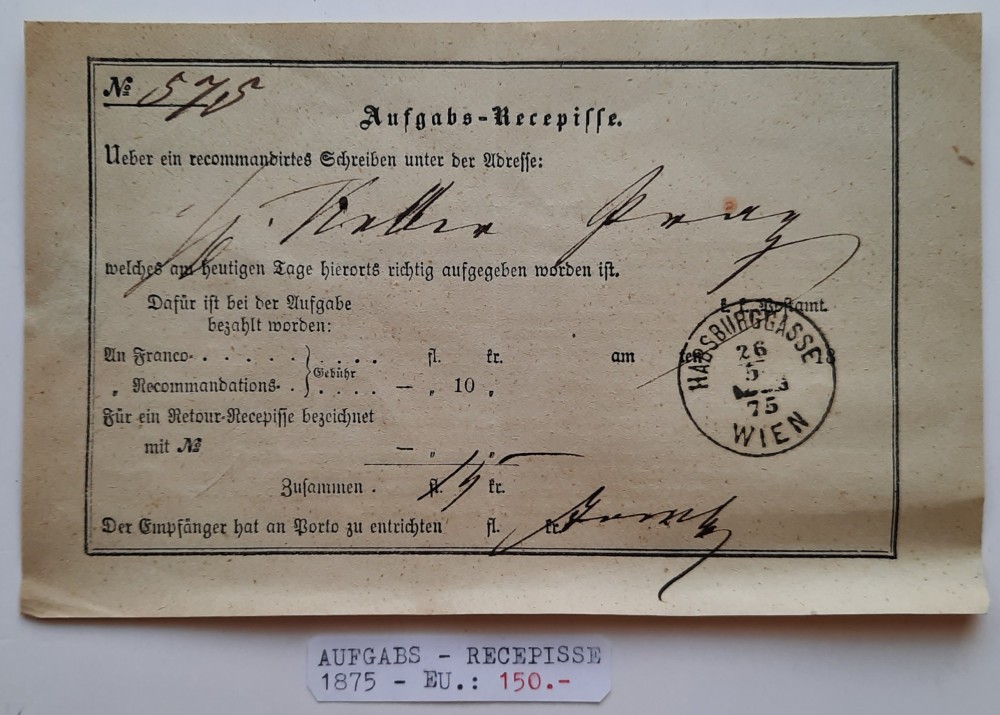 № 575
Aufgabs-Recepisse.
Ueber ein recommandirtes Schreiben unter der Adresse:
Keller Prag
welches am heutigen Tage hierorts richtig aufgegeben worden ist.
Dafür ist bei der Aufgabe
bezahlt worden:
k. k. Postamt.
An Franco . . . . . . . . . . fl. kr.
„ Recommandations- . . . . . . — „ 10 „
Gebühr
am ten 18
HABSBURGGASSE
26
5
75
WIEN
Für ein Retour-Recepisse bezeichnet
mit № — „ „
Zusammen . fl. 15 kr.
Der Empfänger hat an Porto zu entrichten fl. kr.
AUFGABS - RECEPISSE
1875 - EU.: 150.-